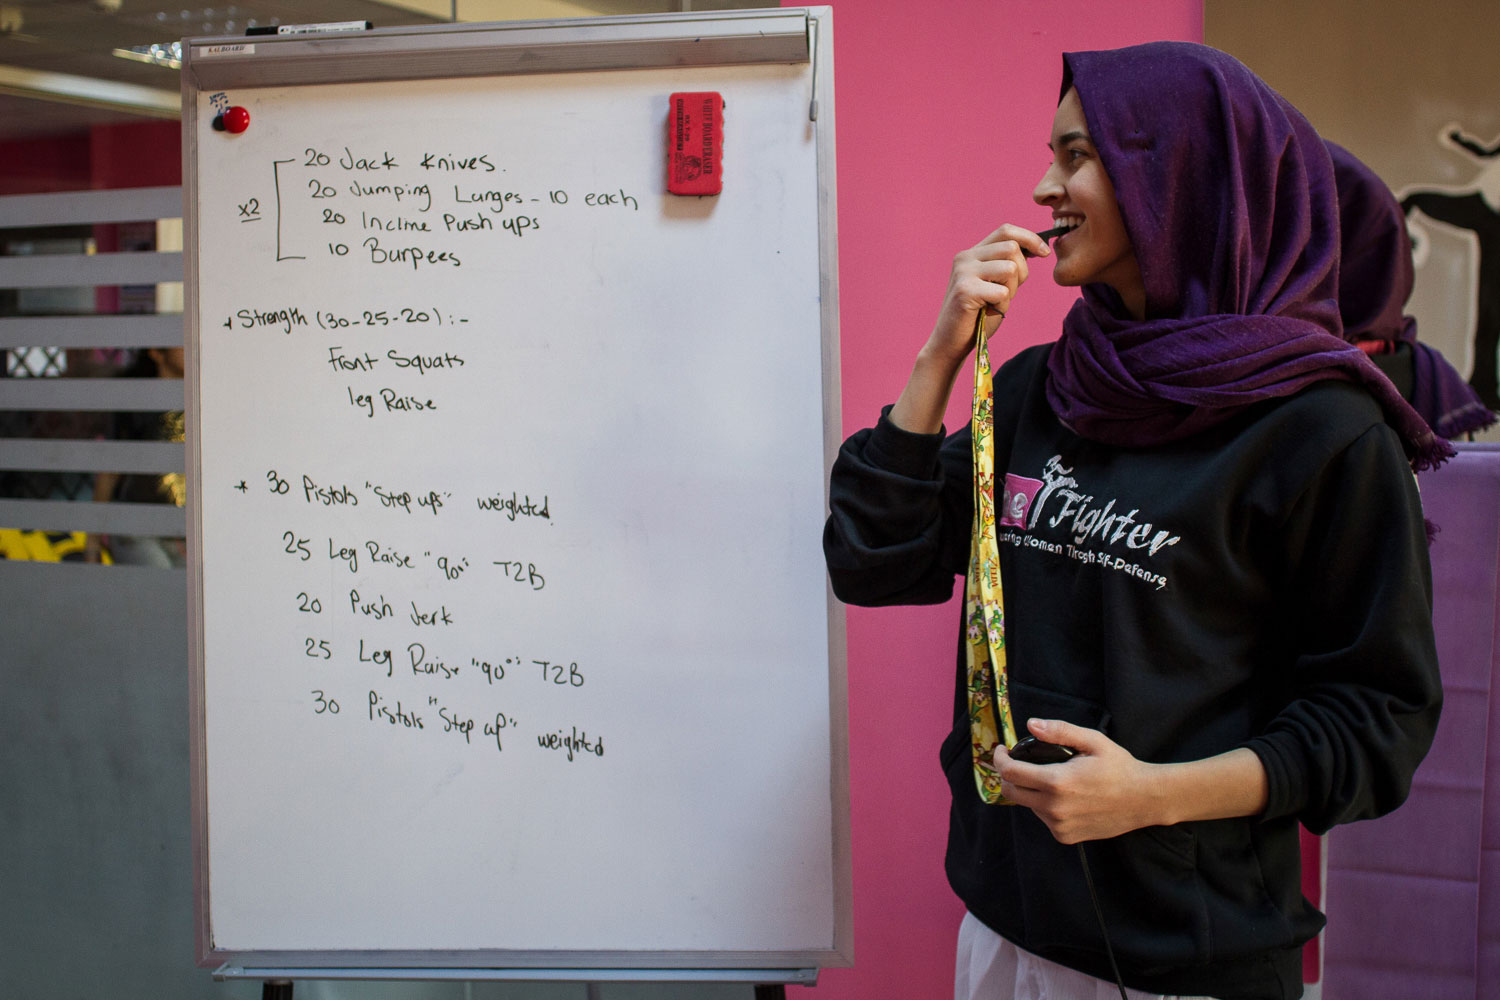 KALBOARD
20 Jack Knives.
20 Jumping Lunges - 10 each
x2
20 Incline Push ups
10 Burpees
* Strength (30-25-20) :-
Front Squats
leg Raise
* 30 Pistols "Step ups" weighted
25 Leg Raise "90°" T2B
20 Push Jerk
25 Leg Raise "90°" T2B
30 Pistols "Step up" weighted
WHITE BOARD ERASER
Fighter
Women Through Self-Defense
ZELDA